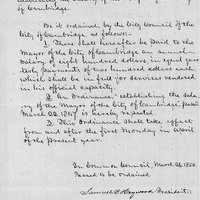 of Cambridge.
Be it ordained by the City Council of the
City of Cambridge, as follows:-
1. There shall hereafter be paid to the
Mayor of the City of Cambridge an annual
salary of eight hundred dollars in equal quar-
terly payments of two hundred dollars each
which shall be in full for services rendered
in his official capacity.
2. An Ordinance establishing the sala-
ry of the Mayor of the City of Cambridge passed
March 22, is hereby repealed.
3. This Ordinance shall take effect
from and after the first Monday in April
of the present year.
In Common Council, March
Passed to be ordained
Samuel P. Heywood President